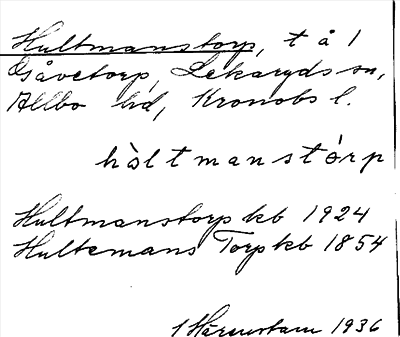 Hultmanstorp, t å 1
Gåvetorp, Lekaryds sn,
Allbo hd, Kronobs l.
hòltmanstórp
Hultmanstorp kb 1924
Hultemans Torp kb 1854
1936